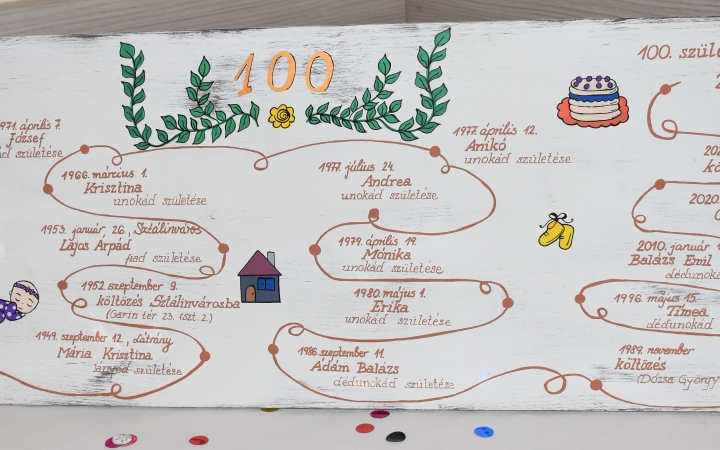 100
100. szül
1971. április 7.
József
ád születése
1966. március 1.
Krisztina
unokád születése
1953. január 26., Sztálinváros
Lajos Árpád
fiad születése
1952. szeptember 9.
költözés Sztálinvárosba
(Garin tér 23. fszt. 2.)
1949. szeptember 12., Látrány
Mária Krisztina
lányod születése
1977. április 12.
Anikó
unokád születése
1977. július 24.
Andrea
unokád születése
1979. április 19.
Mónika
unokád születése
1980. május 1.
Erika
unokád születése
1986. szeptember 11.
Ádám Balázs
dédunokád születése
1989. november
költözés
(Dózsa György
1996. május 15.
Tímea
dédunokád
2010. január 1
Balázs Emil
dédunok
2020.
202
kö